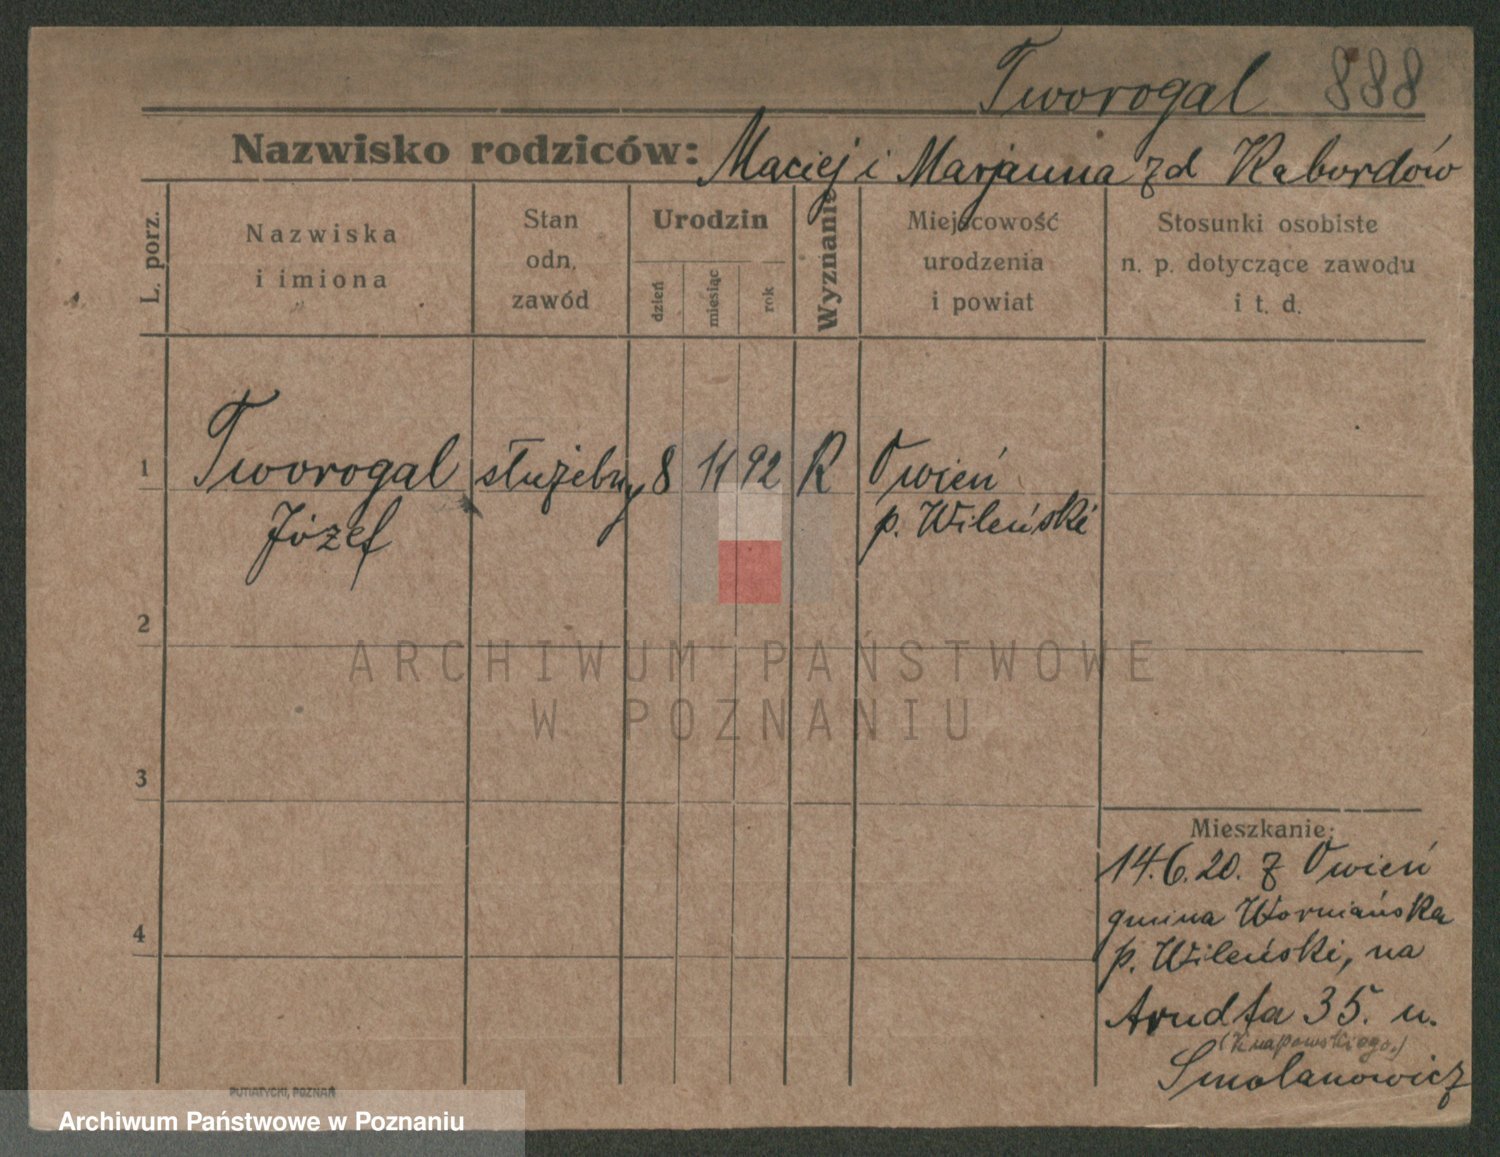 Tworogal 888
Nazwisko rodziców: Maciej i Marjanna zd Kabordów
L. porz.
Nazwiska
i imiona
Stan
odn.
zawód
Urodzin
dzień
miesiąc
rok
Wyznanie
Miejscowość
urodzenia
i powiat
Stosunki osobiste
n. p. dotyczące zawodu
i t. d.
1 Tworogal służebny 8 11 92 R Owień
Józef p. Wileński
2
ARCHIWUM PAŃSTWOWE
W POZNANIU
3
Mieszkanie:
14.6.20. z Owień
gmina Worniańska
4
p. Wileński, na
Arndta 35. u.
(Knapowskiego.)
Smolanowicz
PUTIATYCKI, POZNAŃ
Archiwum Państwowe w Poznaniu